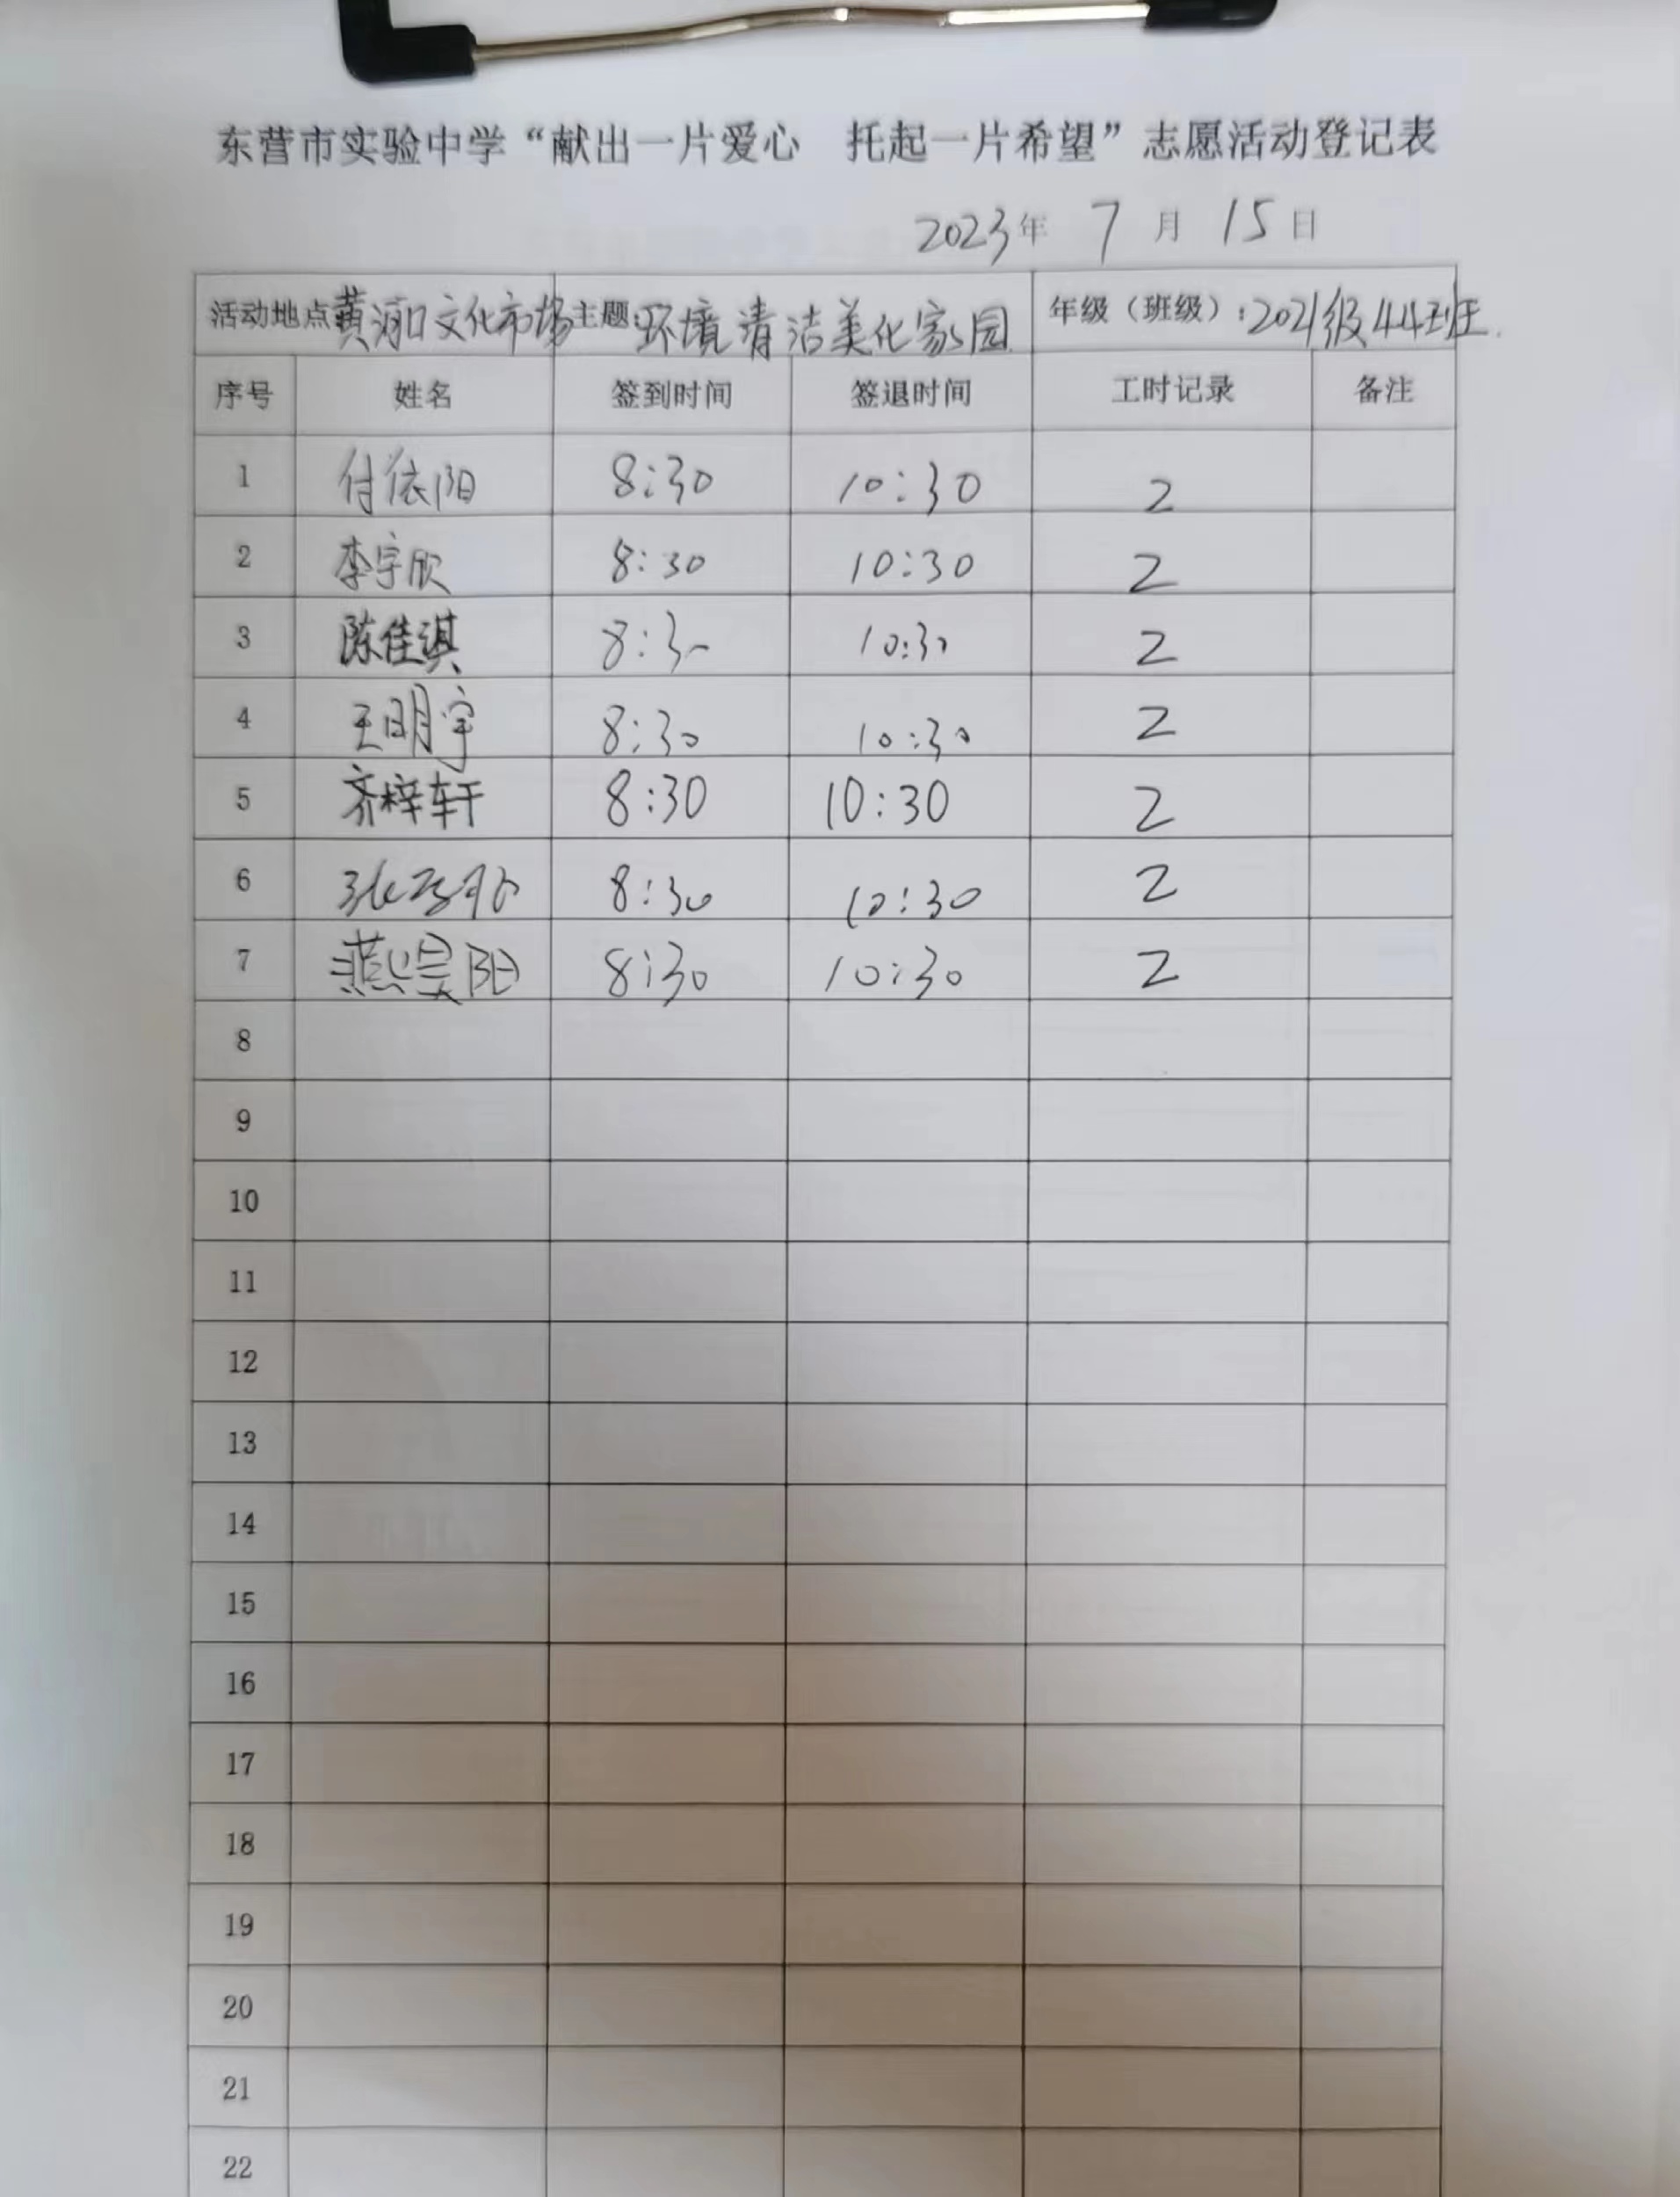 东营市实验中学“献出一片爱心 托起一片希望”志愿活动登记表
2023年 7 月 15 日
活动地点黄河口文化市场 主题:环境清洁美化家园 年级（班级）:2021级44班.
序号 姓名 签到时间 签退时间 工时记录 备注
1 付依阳 8:30 10:30 2
2 李宇欣 8:30 10:30 2
3 陈佳淇 8:30 10:30 2
4 王明宇 8:30 10:30 2
5 齐梓轩 8:30 10:30 2
6 张 8:30 10:30 2
7 燕昊阳 8:30 10:30 2
8
9
10
11
12
13
14
15
16
17
18
19
20
21
22